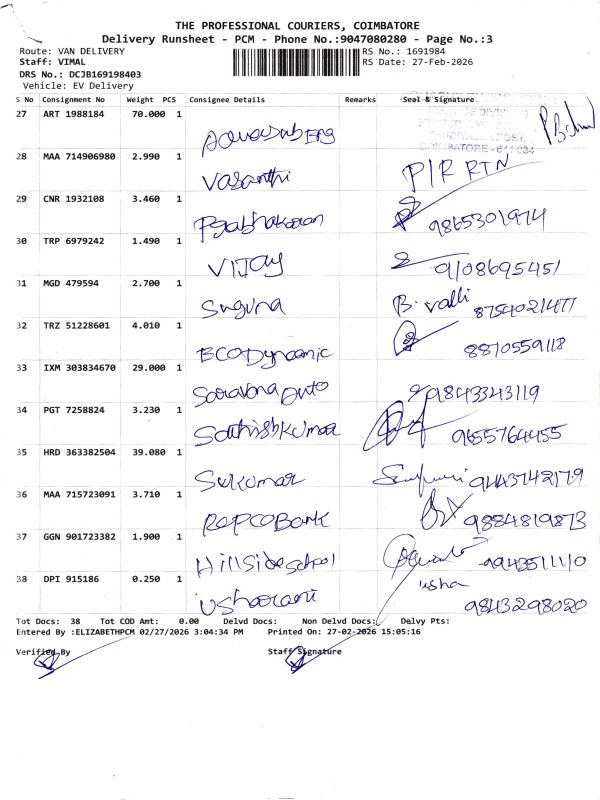 THE PROFESSIONAL COURIERS, COIMBATORE
Delivery Runsheet - PCM - Phone No.:9047080280 - Page No.:3
Route: VAN DELIVERY RS No.: 1691984
Staff: VIMAL RS Date: 27-Feb-2026
DRS No.: DCJB169198403
Vehicle: EV Delivery
S No Consignment No Weight PCS Consignee Details Remarks Seal & Signature
27 ART 1988184 70.000 1
28 MAA 714906980 2.990 1
Vasanthi P/R RTN
29 CNR 1932108 3.460 1
Prabhakaran 9865301974
30 TRP 6979242 1.490 1
VIJAY 9108695451
31 MGD 479594 2.700 1
Suguna B. valli 8754021477
32 TRZ 51228601 4.010 1
ECODynamic 8870559118
33 IXM 303834670 29.000 1
Saravana Auto 9843343119
34 PGT 7258824 3.230 1
Sathishkumar 9655764455
35 HRD 363382504 39.080 1
Sukumar 9443742179
36 MAA 715723091 3.710 1
REPCOBank 9884819873
37 GGN 901723382 1.900 1
Hillside school 9943511110
38 DPI 915186 0.250 1 usha
Usharani 9843298020
Tot Docs: 38 Tot COD Amt: 0.00 Delvd Docs: Non Delvd Docs: Dalvy Pts:
Entered By :ELIZABETHPCM 02/27/2026 3:04:34 PM Printed On: 27-02-2026 15:05:16
Verified By Staff Signature